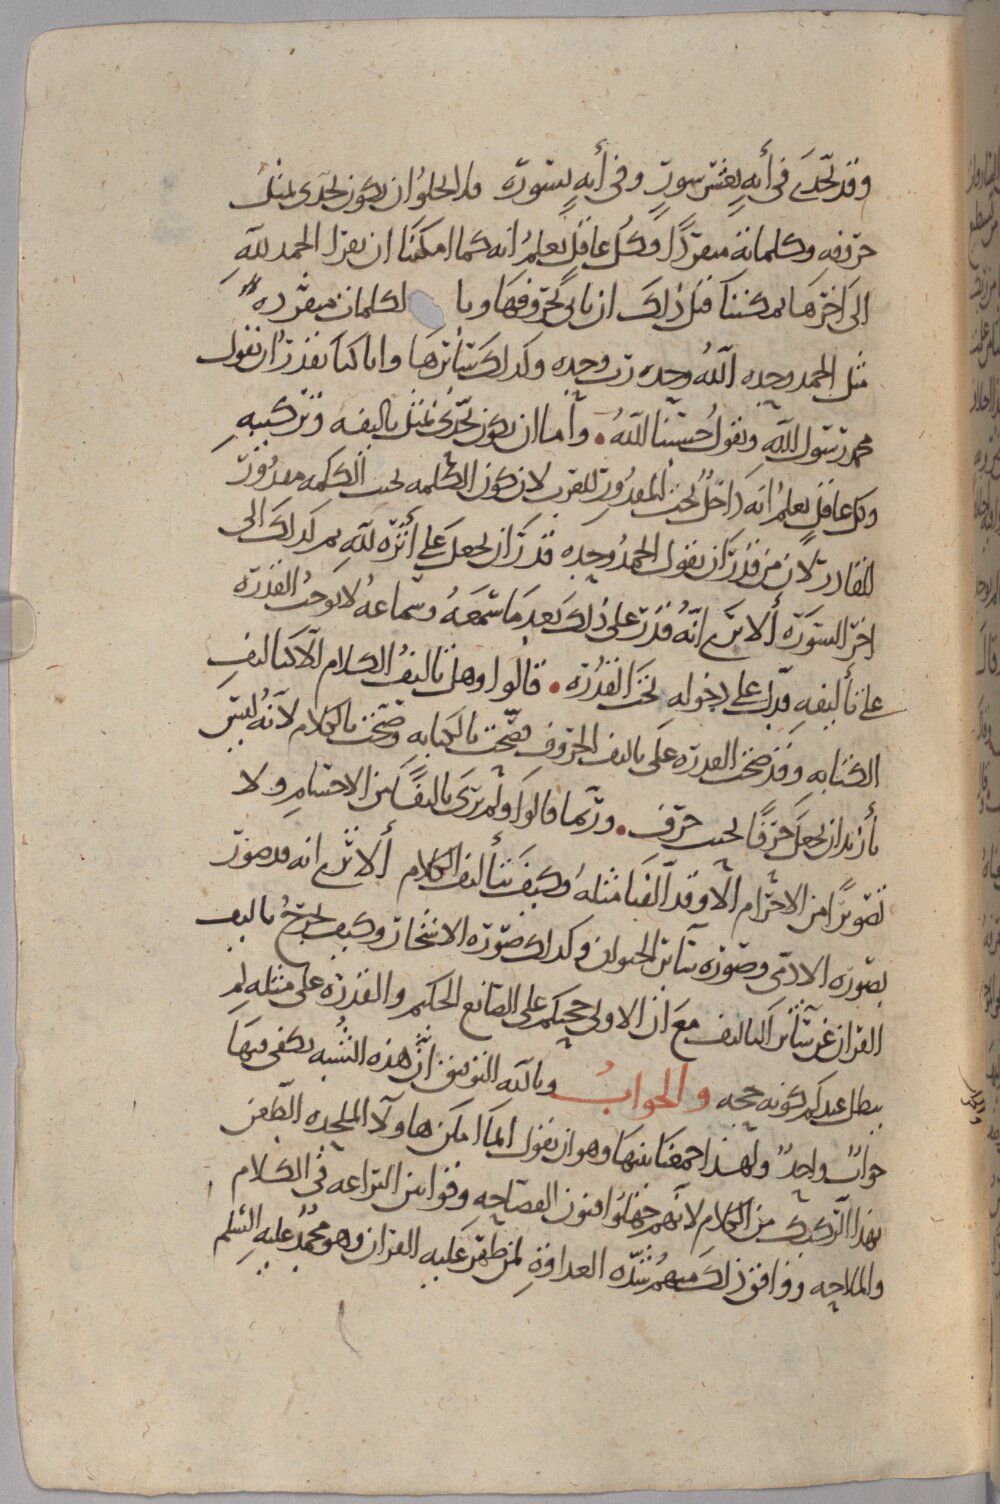 وقد تحدى في أيه بعشر سور وفي أيه بسورة فلا يخلوا ان يكون تحدى بمثل
حروفه وكلماته منفردًا وكل عاقل يعلم انه كما امكننا ان نقرا الحمد لله
الى اخرها يمكننا قبل ذلك ان ناتي بحروفها وبا لكلمات منفرده
مثل الحمد وحده الله وحده رب وحده وكذلك سائرها وانا كنا نقدر ان نقول
محمد رسول الله ونقول حسبنا الله • وأما ان يكون تحدى بمثل تاليفه وتركيبه
وكل عاقل يعلم انه داخل تحت المقدور للعرب لان كون الكلمه تحت الكلمه مقدور
للقادر لان من قدر ان يقول الحمد وحده قدر ان يجعل على أثره لله ثم كذلك الى
اخر السورة ألا ترى انه قدر على ذلك بعد ما سمعه وسماعه لا يوجب القدرة
على تأليفه فدل على دخوله تحت القدرة • قالوا وهل تاليف الكلام الا كتاليف
الكتابه وقد صحت القدرة على تاليف الحروف فصحت بالكتابه وصحت بالكلام لأنه ليس
بأزيد ان يجعل حرفًا تحت حرف • وربما قالوا ولم نرى تاليفًا من الاجسام ولا
تصويرًا من الاجرام الا وقد ألفنا مثله وكيف بتأليف الكلام ألا ترى انه قد صور
بصورة الادمي وصورة سائر الحيوان وكذلك صورة الاشجار وكيف يخرج تاليف
القران عن سائر التاليف مع ان الاولى حجتكم على الصانع الحكيم والقدرة على مثله لم
يبطل عندكم كونه حجه والجواب وبالله التوفيق ان هذه الشبه يكفي فيها
جواب واحد ولهذا جمعنا بينها وهو ان نقول انما امكن هاولا الملحده الطعن
بهذا التركيب من الكلام لأنهم جهلوا فنون الفصاحه وقوانين البراعه في الكلام
والملاحه ووافق ذلك منهم شدة العداوة لمن ظهر عليه القران وهو محمد عليه السلم